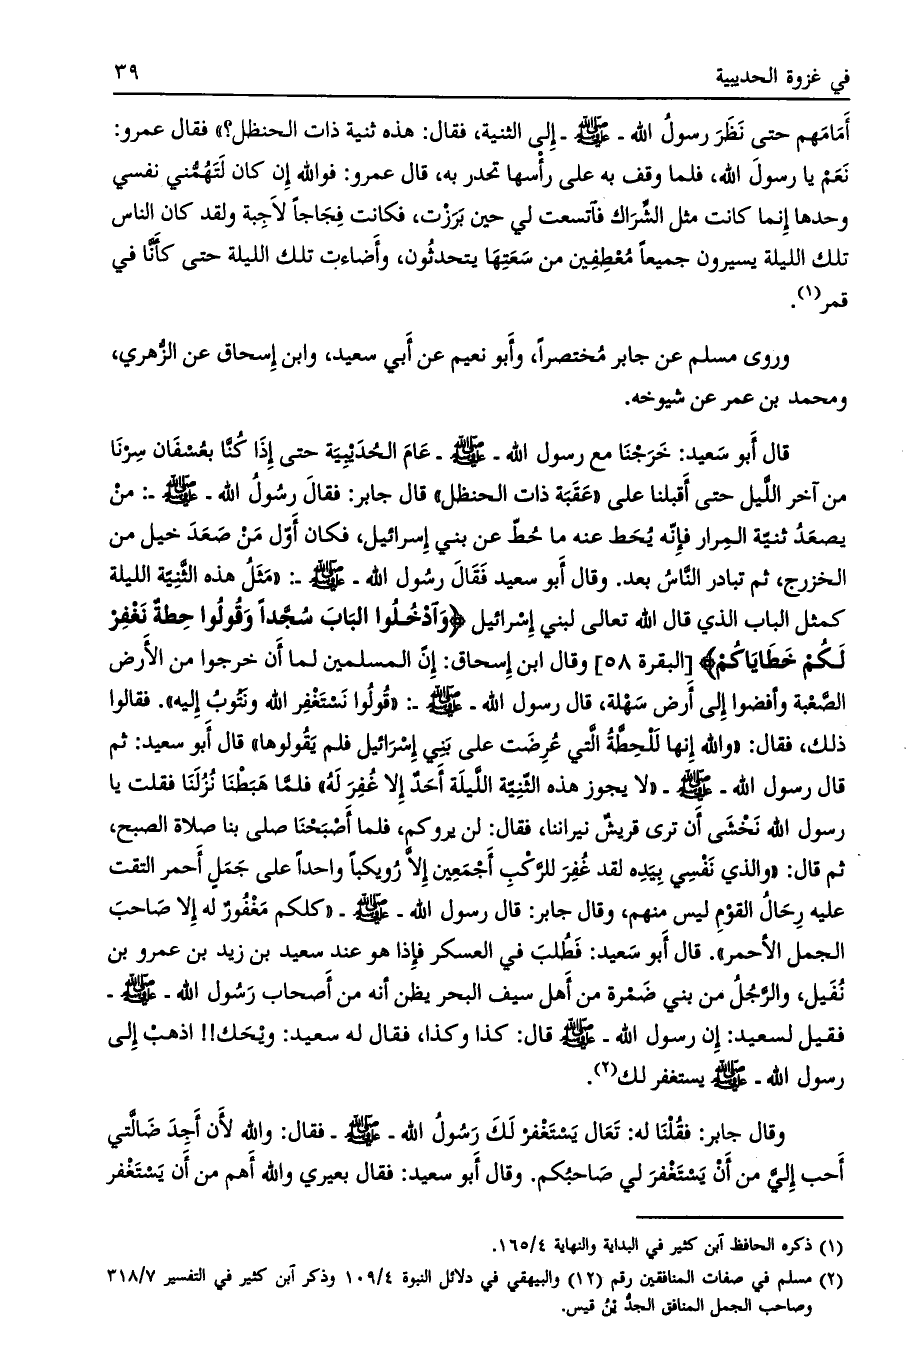 في غزوة الحديبية ٣٩
أَمَامَهم حتى نَظَرَ رسولُ الله ـ ﷺ ـ إلى الثنية، فقال: هذه ثنية ذات الحنظل؟» فقال عمرو:
نَعَمْ يا رسولَ الله، فلما وقف به على رأْسها تحدر به، قال عمرو: فوالله إن كان لَتَهُمُّني نفسي
وحدها إنما كانت مثل الشِّرَاك فآتسعت لي حين بَرَزْت، فكانت فِجَاجاً لاَجِبة ولقد كان الناس
تلك الليلة يسيرون جميعاً مُعْطِفِين من سَعَتِهَا يتحدثُون، وأَضاءت تلك الليلة حتى كأَنَّا في
قمر(١).
وروى مسلم عن جابر مُختصراً، وأَبو نعيم عن أَبي سعيد، وابن إسحاق عن الزُّهري،
ومحمد بن عمر عن شيوخه.
قال أَبو سَعيد: خَرَجْنَا مع رسول الله ـ ﷺ ـ عَامَ الحُدَيْبِيَة حتى إذَا كُنَّا بعُسْفَان سِرْنَا
من آخر اللَّيل حتى أَقبلنا على «عَقَبَة ذات الحنظل» قال جابر: فقالَ رسُولُ الله ـ ﷺ ـ: منْ
يصعَدُ ثنيّة المِرار فإنّه يُحَط عنه ما حُطّ عن بني إسرائيل، فكان أَوّل مَنْ صَعَدَ خيل من
الخزرج، ثم تبادر النَّاسُ بعد. وقال أَبو سعيد فَقَالَ رسُول الله ـ ﷺ ـ: «مَثَلُ هذه الثَّنِيّة الليلة
كمثل الباب الذي قال الله تعالى لبني إسْرائيل ﴿وَآدْخُلُوا البَابَ سُجَّداً وَقُولُوا حِطةٌ نَغْفِرْ
لَكُمْ خَطَايَاكُمْ﴾ [البقرة ٥٨] وقال ابن إسحاق: إنّ المسلمين لما أَن خرجوا من الأَرض
الصَّعْبة وأفضوا إلى أَرض سَهْلة، قال رسول الله ـ ﷺ ـ: «قُولُوا نَسْتَغْفِر الله ونَتُوبُ إليه». فقالوا
ذلك، فقال: «والله إنها لَلْحِطَّةُ الَّتي عُرِضَت على بَنِي إسْرَائيل فلم يَقُولوها» قال أَبو سعيد: ثم
قال رسول الله ـ ﷺ ـ «لا يجوز هذه الثَّنِيّة اللَّيلَة أَحَدٌ إلا غُفِرَ لَهُ» فلمَّا هَبَطْنَا نُزُلَنَا فقلت يا
رسول الله نَخْشَى أَن ترى قريشٌ نيراننا، فقال: لن يروكم، فلما أَصْبَحْنَا صلى بنا صلاة الصبح،
ثم قال: «والذي نَفْسِي بِيَدِه لقد غُفِرَ للرَّكْبِ أَجْمَعِين إلاَّ رُويكباً واحداً على جَمَلٍ أحمر التقت
عليه رِحَالُ القوْمِ ليس منهم، وقال جابر: قال رسول الله ـ ﷺ ـ «كلكم مَغْفُورٌ له إلا صَاحبَ
الجمل الأحمر». قال أَبو سَعيد: فَطُلبَ في العسكر فإذا هو عند سعيد بن زيد بن عمرو بن
نُفَيل، والرَّجُلُ من بني ضَمْرة من أَهل سيف البحر يظن أنه من أَصحاب رَسُول الله ـ ﷺ ـ
فقيل لسعيد: إن رسول الله ـ ﷺ قال: كذا وكذا، فقال له سعيد: ويْحَك!! اذهبْ إلى
رسول الله ـ ﷺ يستغفر لك(٢).
وقال جابر: فقُلْنَا له: تَعَال يَسْتَغْفرْ لَكَ رَسُولُ الله ـ ﷺ ـ فقال: والله لأَن أَجِدَ ضَالَّتي
أَحب إليَّ من أَنْ يَسْتَغْفرَ لي صَاحبُكم. وقال أَبو سعيد: فقال بعيري والله أَهم من أَن يَسْتَغْفر
(١) ذكره الحافظ آبن كثير في البداية والنهاية ١٦٥/٤.
(٢) مسلم في صفات المنافقين رقم (١٢) والبيهقي في دلائل النبوة ١٠٩/٤ وذكر آبن كثير في التفسير ٣١٨/٧
وصاحب الجمل المنافق الجدُّ بْنُ قيس.